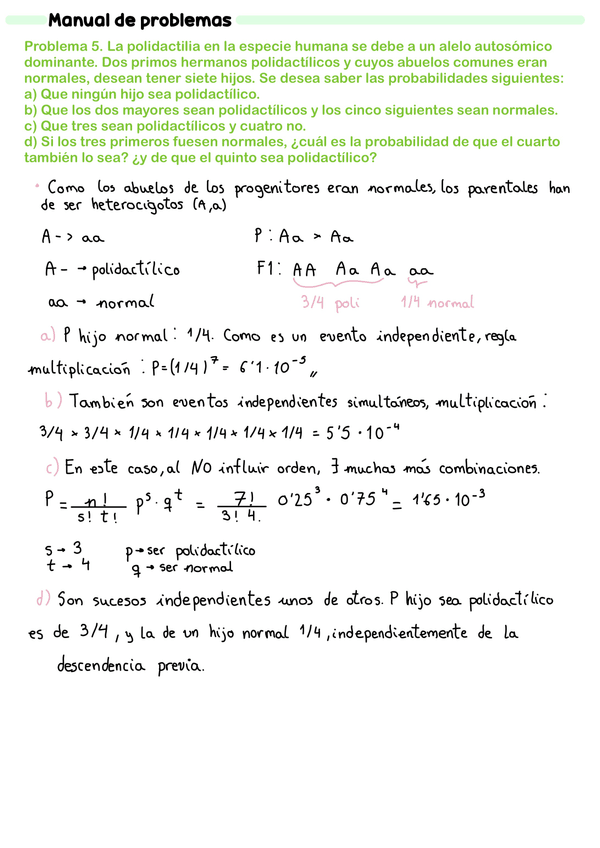 Manual de problemas
Problema 5. La polidactilia en la especie humana se debe a un alelo autosómico
dominante. Dos primos hermanos polidactílicos y cuyos abuelos comunes eran
normales, desean tener siete hijos. Se desea saber las probabilidades siguientes:
a) Que ningún hijo sea polidactílico.
b) Que los dos mayores sean polidactílicos y los cinco siguientes sean normales.
c) Que tres sean polidactílicos y cuatro no.
d) Si los tres primeros fuesen normales, ¿cuál es la probabilidad de que el cuarto
también lo sea? ¿y de que el quinto sea polidactílico?
* Como los abuelos de los progenitores eran normales, los parentales han
de ser heterocigotos (A,a)
A -> aa
P: Aa × Aa
A- → polidactílico
F1: AA Aa Aa aa
aa → normal
3/4 poli 1/4 normal
a) P hijo normal: 1/4. Como es un evento independiente, regla
multiplicación: P=(1/4)⁷= 6'1·10⁻⁵,,
b) También son eventos independientes simultáneos, multiplicación:
3/4 × 3/4 × 1/4 × 1/4 × 1/4 × 1/4 × 1/4 = 5'5 · 10⁻⁴
c) En este caso, al NO influir orden, ∃ muchas más combinaciones.
P = n!/s! t! pˢ · qᵗ = 7!/3! 4. 0'25³ · 0'75⁴ = 1'65 · 10⁻³
s → 3 p → ser polidactílico
t → 4 q → ser normal
d) Son sucesos independientes unos de otros. P hijo sea polidactílico
es de 3/4, y la de un hijo normal 1/4, independientemente de la
descendencia previa.